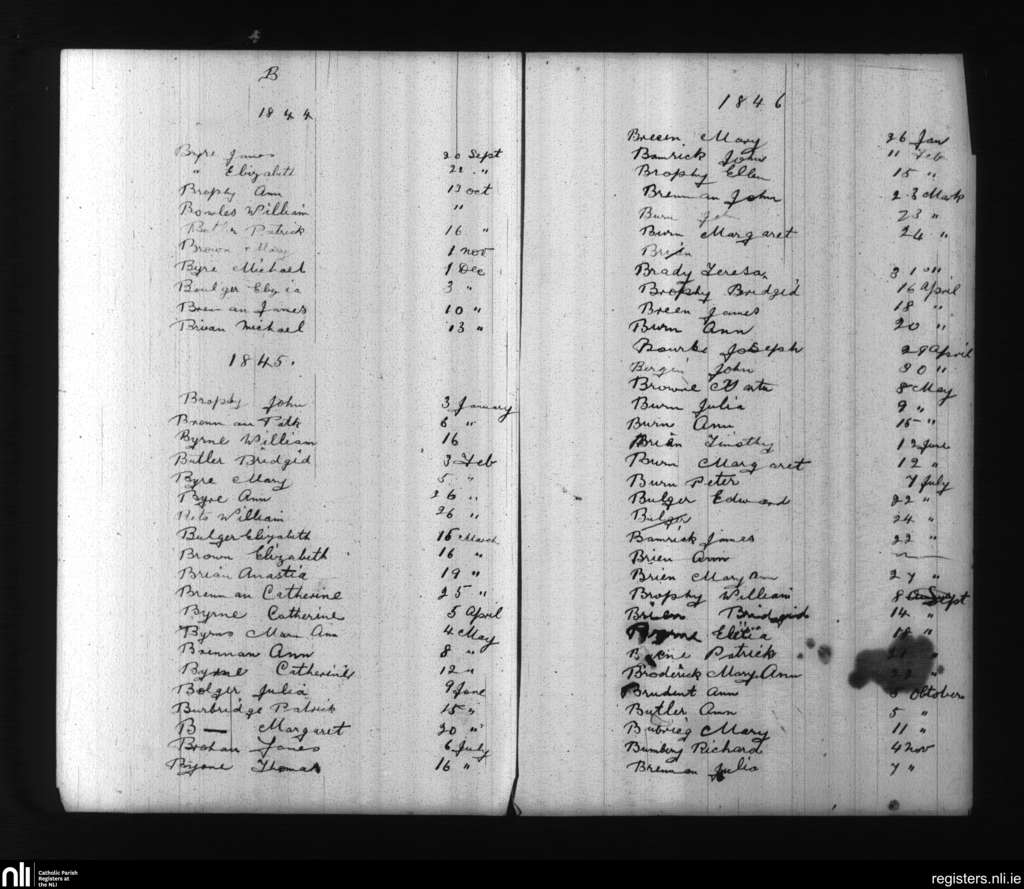 B
1844
Byre James 20 Sept
" Elizabeth 22 "
Brophy Ann 13 oct
Bowles William "
Patrick 16 "
Brown Mary 1 nov
Byre Michael 1 Dec
Boulger 3 "
Brennan James 10 "
Brian Michael 13 "
1845.
Brophy John 3 January
Brennan Patk 6 "
Byrne William 16
Butler Bridgid 3 Feb
Byre Mary 5 "
Byre Ann 26 "
William 26 "
Bulger Elizabeth 15 March
Brown Elizabeth 16 "
Brian Anastia 19 "
Brennan Catherine 25 "
Byrne Catherine 5 April
Byrns Mara Ann 4 May
Brennan Ann 8 "
Byrne Catherine 12 "
Bolger Julia 9 June
Burbridge Patrick 15 "
B— Margaret 20 "
Brohan James 6 July
Byrne Thomas 16 "
1846
Breen Mary 26 Jan
Bamrick John 11 Feb
Brophy Ellen 15 "
Brennan John 23
Burn 23 "
Burn Margaret 24 "
Brien
Brady Teresa 31 "
Brophy Bridgid 16 April
Breen James 18 "
Burn Ann 20 "
Bourke Joseph 29 April
Bergin John 30 "
Browne 8 May
Burn Julia 9 "
Burn Ann 15 "
Brien Timothy 12 June
Burn Margaret 12 "
Burn Peter 7 July
Bulger Edward 22 "
Bulger 24 "
Bamrick James 22 "
Brien Ann
Brien Mary Ann 27 "
Brophy William 8 Sept
Brien Bridgid 14 "
Byrne "
Patrick 21 "
Broderick Mary Ann 22 "
Brudent Ann 5 October
Butler Ann 5 "
Mary 11 "
Richard 4 Nov
Brennan Julia 7 "
nli Catholic Parish
Registers at
the NLI
registers.nli.ie